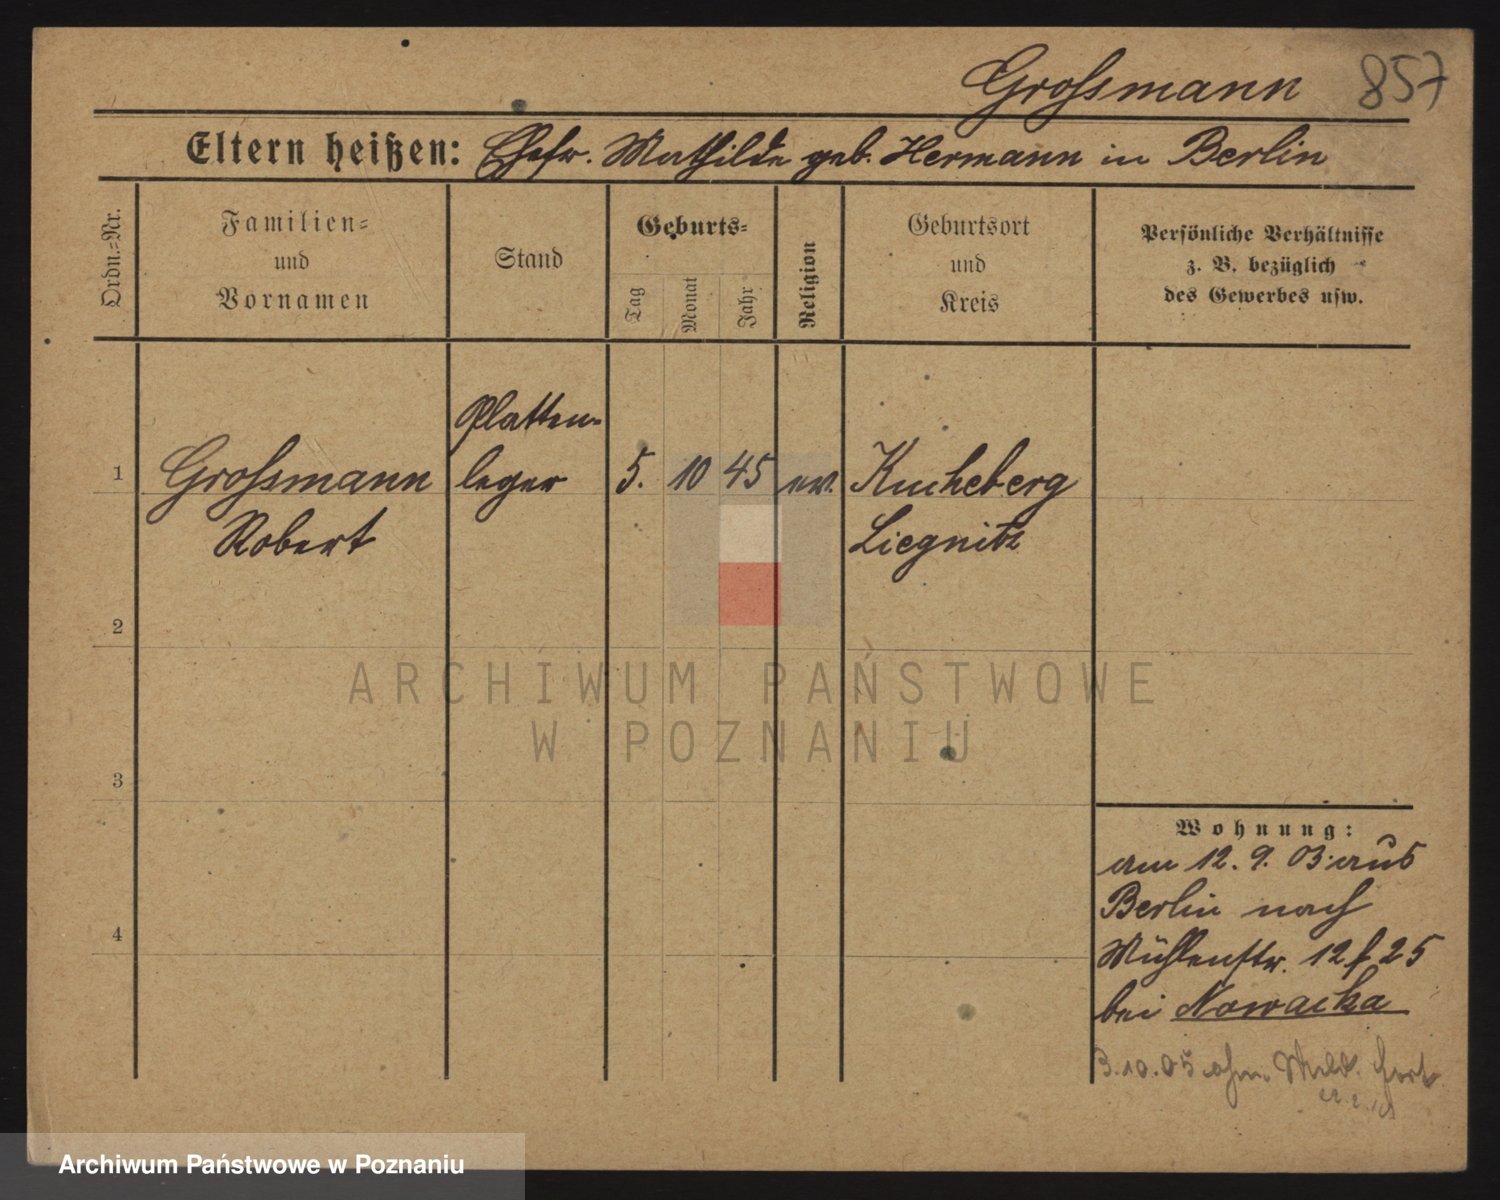 Grossmann 857
Eltern heißen: Ehefr. Mathilde geb. Hermann in Berlin
Ordn.=Nr.
Familien=
und
Vornamen
Stand
Geburts=
Tag
Monat
Jahr
Religion
Geburtsort
und
Kreis
Persönliche Verhältnisse
z. B. bezüglich
des Gewerbes usw.
Platten-
1 Grossmann leger 5. 10 45 ev. Kucheberg
Robert Liegnitz
2
3
4
Wohnung:
am 12. 9. 03. aus
Berlin nach
Mühlenstr. 12 f 25
bei Nowacka
3.10.05 ohne Meld. fort
ARCHIWUM PAŃSTWOWE
W POZNANIU
Archiwum Państwowe w Poznaniu